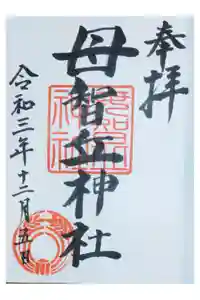 奉拝
母智丘神社
令和三年十二月五日